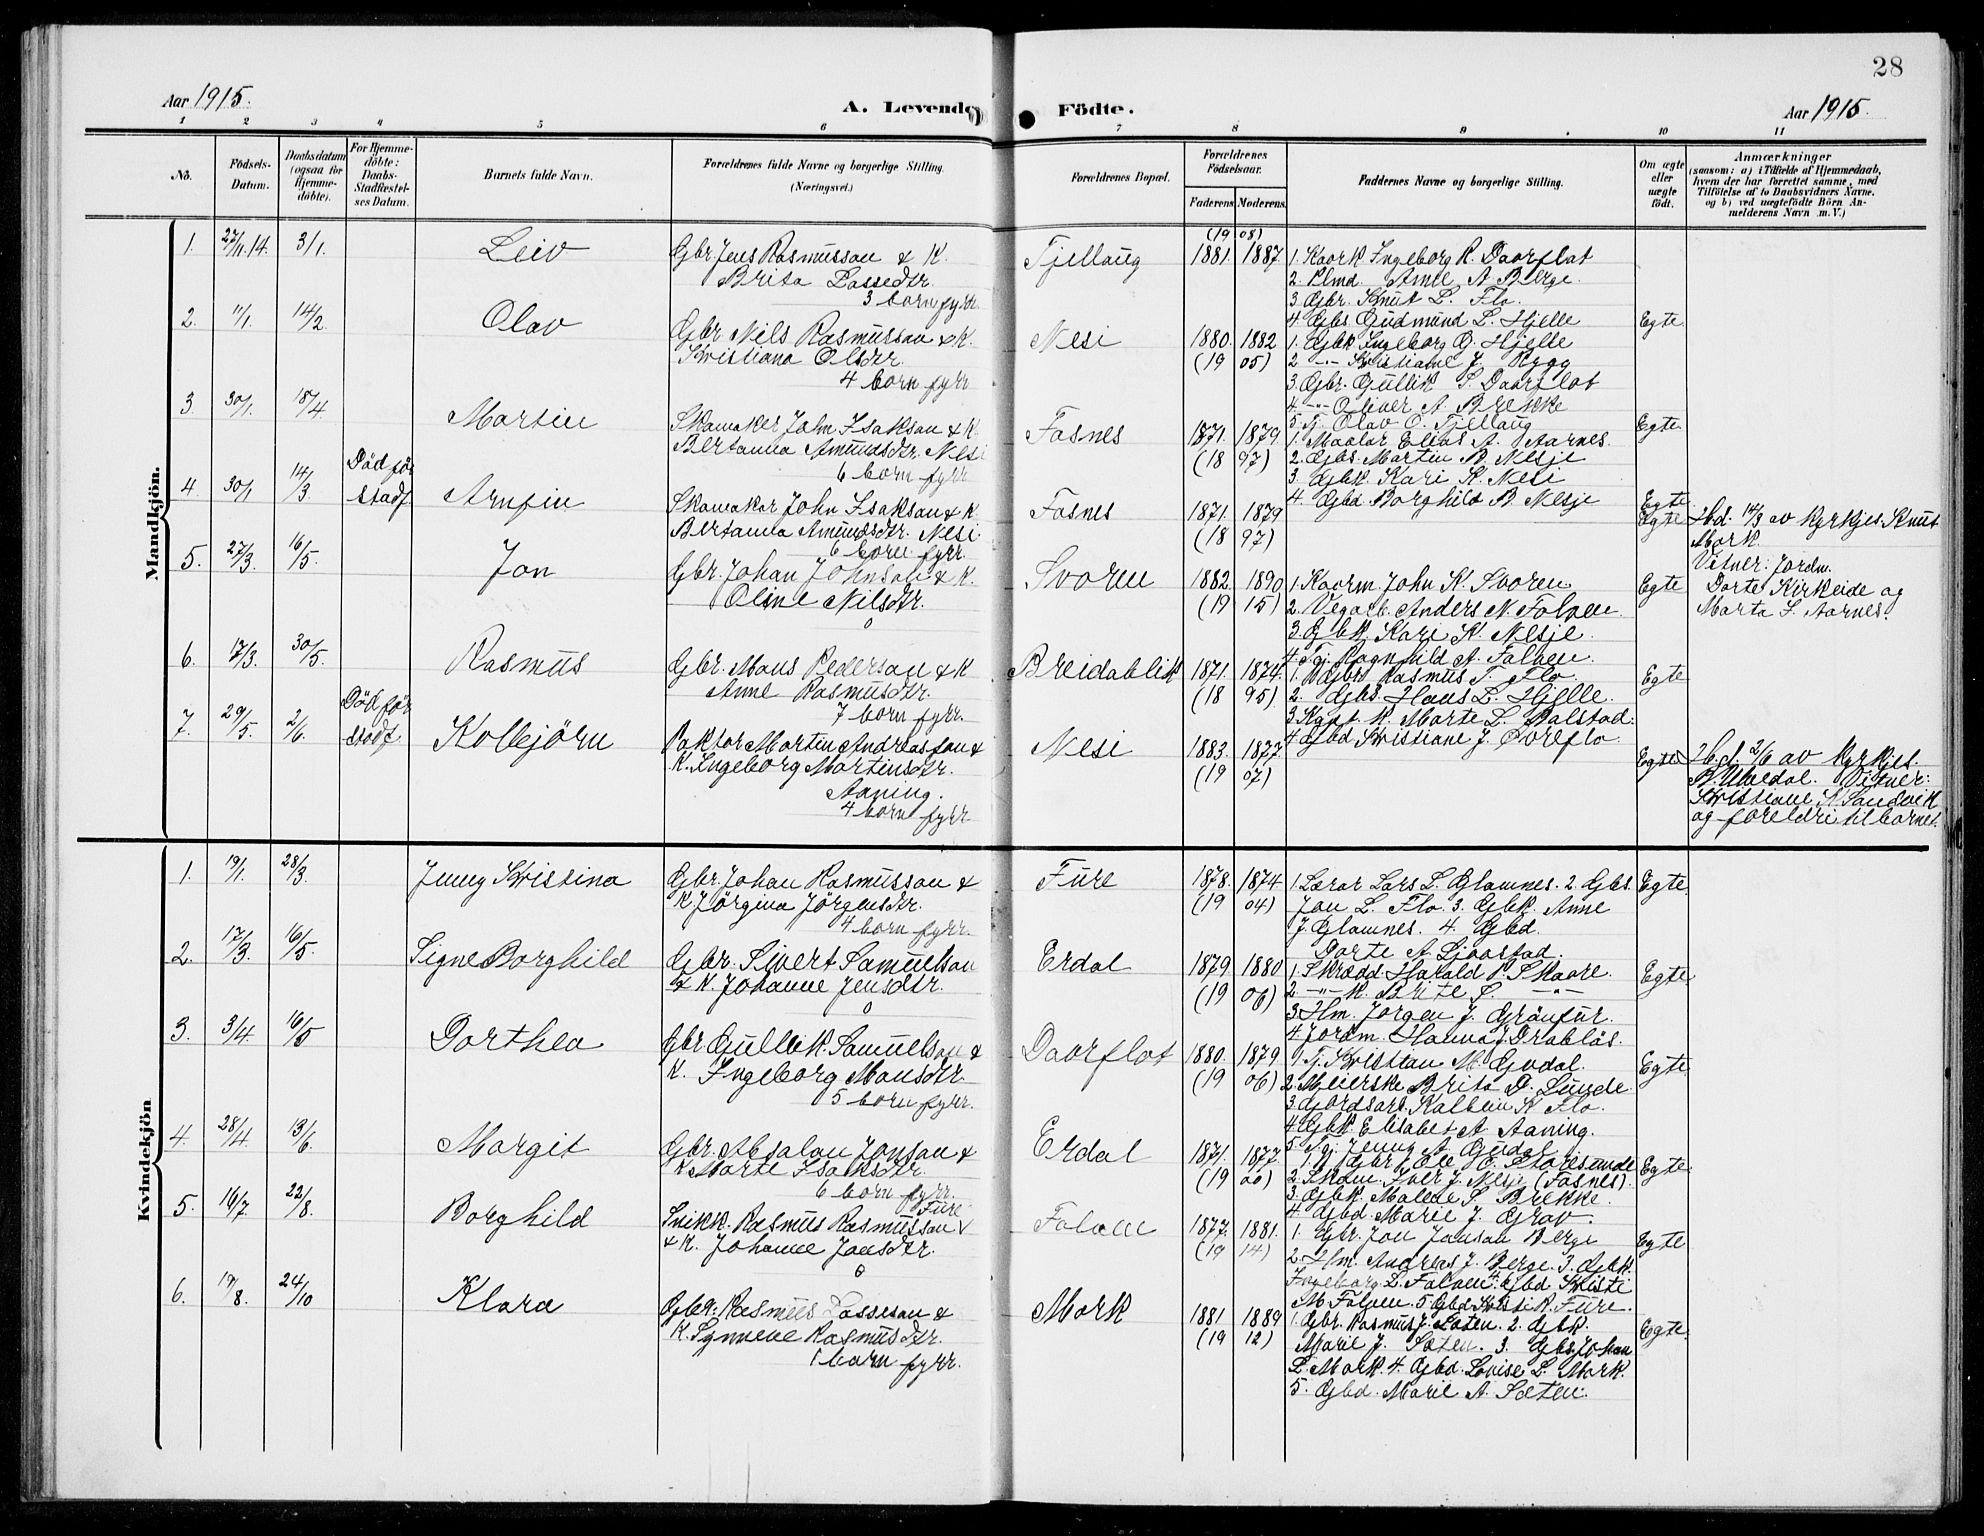 28
Aar 1915.
A. Levende Födte.
Aar 1915.
1 2 3 4 5 6 7 8 9 10 11
No.
Födsels-Datum.
Daabsdatum (ogsaa for Hjemme-döbte).
For Hjemme-döbte: Daabs-Stadfæstel-ses Datum.
Barnets fulde Navn.
Forældrenes fulde Navne og borgerlige Stilling. (Næringsvei.)
Forældrenes Bopæl.
Forældrenes Födselsaar.
Faderens. Moderens.
Faddernes Navne og borgerlige Stilling.
Om ægte eller uægte födt.
Anmærkninger
(saasom: a) i Tilfælde af Hjemmedaab, hvem der har forrettet samme, med Tilföielse af to Daabsvidners Navne. og b) ved uægtefödte Börn An-melderens Navn m. V.)
Mandkjön.
1. 27/11.14. 3/1. Leiv
Gbr Jens Rasmusson & K.
Brita Lassedtr.
3 born fyrr
Tjellaug
(19 08)
1881. 1887.
1. Kaark Ingeborg R. Daarflot
2. Plmd. Arne A Berge.
3 Gbr. Knut L. Flo.
4 Gbs Gudmund L. Hjelle
Egte
2. 11/1. 14/2 Olav
Gbr Nils Rasmusson & K.
Kristiana Olsdtr.
4 born fyrr
Nesi
1880. 1882
(19 05)
1. Gbk Ingeborg G. Hjelle
2 -"- Kristiane J. Rygg
3. Gbr. Gullik S. Daarflot
4. -"- Oliver A. Brekke
5. Tj. Olav O. Tjellaug
Egte
3. 30/1. 18/4 Martin
Skomaker John Isakson & K.
Bertanna Amundsdtr. Nesi
6 born fyrr
Fosnes
1871. 1879
(18 97)
1. Maalar Elias A. Aarnes.
2. Gbs. Martin B. Nesje
3 Gbk Kari K. Nesi
4. Gbd Borghild B Nesje
Egte
4. 30/1 14/3 Död för stadf. Arnfin
Skomakar John Isakson & K.
Bertanna Amundsdtr. Nesi.
6 born fyrr.
Fosnes
1871. 1879
(18 97)
Egte
Hbd. 14/3 av kyrkjes. Knut
Mork.
Vitner: Jordm.
Dorte Kirkeide og
Marta S. Aarnes.
5. 27/3. 16/5 Jon
Gbr. Johan Johnson & K.
Oline Nilsdtr.
0
Svoren
1882. 1890
(19 15)
1. Kaarm. John K. Svoren
2. Vegarb. Anders N. Folven
3 Gbk. Kari K. Nesje.
4 Tj. Ragnhild A. Folven.
Egte
6. 17/3. 30/5. Rasmus
Gbr. Mons Pederson & K
Anne Rasmusdtr.
7 born fyrr.
Breidablik
1871. 1874.
(18 95)
1. Gbs Rasmus T. Flo.
2. Gbs. Hans L. Hjelle.
3 Kapt. K. Marte L. Balstad.
4 Gbd Kristiane J. Övreflo.
Egte
7. 29/5. 2/6. Död för stadf. Kolbjörn
Faktor Martin Andreasson &
K. Ingeborg Martinsdtr.
Aaning.
4 born fyrr
Nesi
1883. 1877.
(19 07)
Egte
Hbd. 2/6 av kyrkjes.
Vitner:
Kristiane K. Sandvik
og foreldri til barnet.
Kvindekjön
1. 19/1. 28/3. Jenny Kristina
Gbr. Johan Rasmusson &
K. Jörgina Jörgensdtr.
4 born fyrr.
Fure
1878. 1874
(19 04)
1. Lærar Lars L. Glomnes. 2. Gbs.
Jon L. Flo. 3. Gbk. Anne
J. Glomnes. 4. Gbd.
Dorte A Ljoostad.
Egte
2. 17/3. 16/5. Signe Borghild
Gbr. Sivert Samuelson
& K. Johanne Jensdtr.
0
Erdal
1879. 1880
(19 06)
1. Skrædd Harald P. Skaare.
2. -"- K. Brite S. -"-
3 Hm. Jörgen J. Grönfur.
4 Jordm. Hanna J Drabløs.
Egte
3. 3/4. 16/5 Dorthea
Gbr Gullik Samuelson &
K. Ingeborg Monsdtr.
5 born fyrr.
Daarflot
1880. 1879
(19 06)
1 Tj. Kristian M. Gjødal.
2. Meierske Brita D. Lunde
3. Gardsarb. Kalbein K. Flo.
4 Gbk Elisabet A. Aaning.
5. Tj. Jenny A. Gudal
Egte
4. 28/4. 13/6. Margit
Gbr. Absalon Jonson &
K Marte Isaksdtr.
6 born fyrr.
Erdal
1871. 1877.
(19 00)
1. Gbr Ole O. Storesunde
2. Skom. Iver J. Nesje (Fosnes).
3. Gbk. Malene S. Brekke.
4. Gbd. Marie J. Grov.
Egte
5. 16/7. 22/8. Borghild
Snikk. Rasmus Rasmusson Fure
& K. Johanne Jonsdtr.
0
Folven
1877. 1881.
(19 14)
1. Gbr. Jon Jonson Berge
2. Hm. Andreas J. Berge. 3. Gbk.
Ingeborg L. Folven. 4. Gbd Kristi
M. Folven. 5. Gbd Kristi R. Fure.
Egte
6. 19/8. 24/10 Klara
Gbr. Rasmus Lasseson &
K. Synneve Rasmusdtr.
1 born fyrr.
Mork
1881 1889
(19 12)
1. Gbr. Rasmus J. Sæten. 2. Gbk.
Marie J. Sæten. 3. Gbs Johan
L. Mork. 4. Gbd. Lovise L. Mork.
5. Gbd. Marie A. Sæten.
Egte